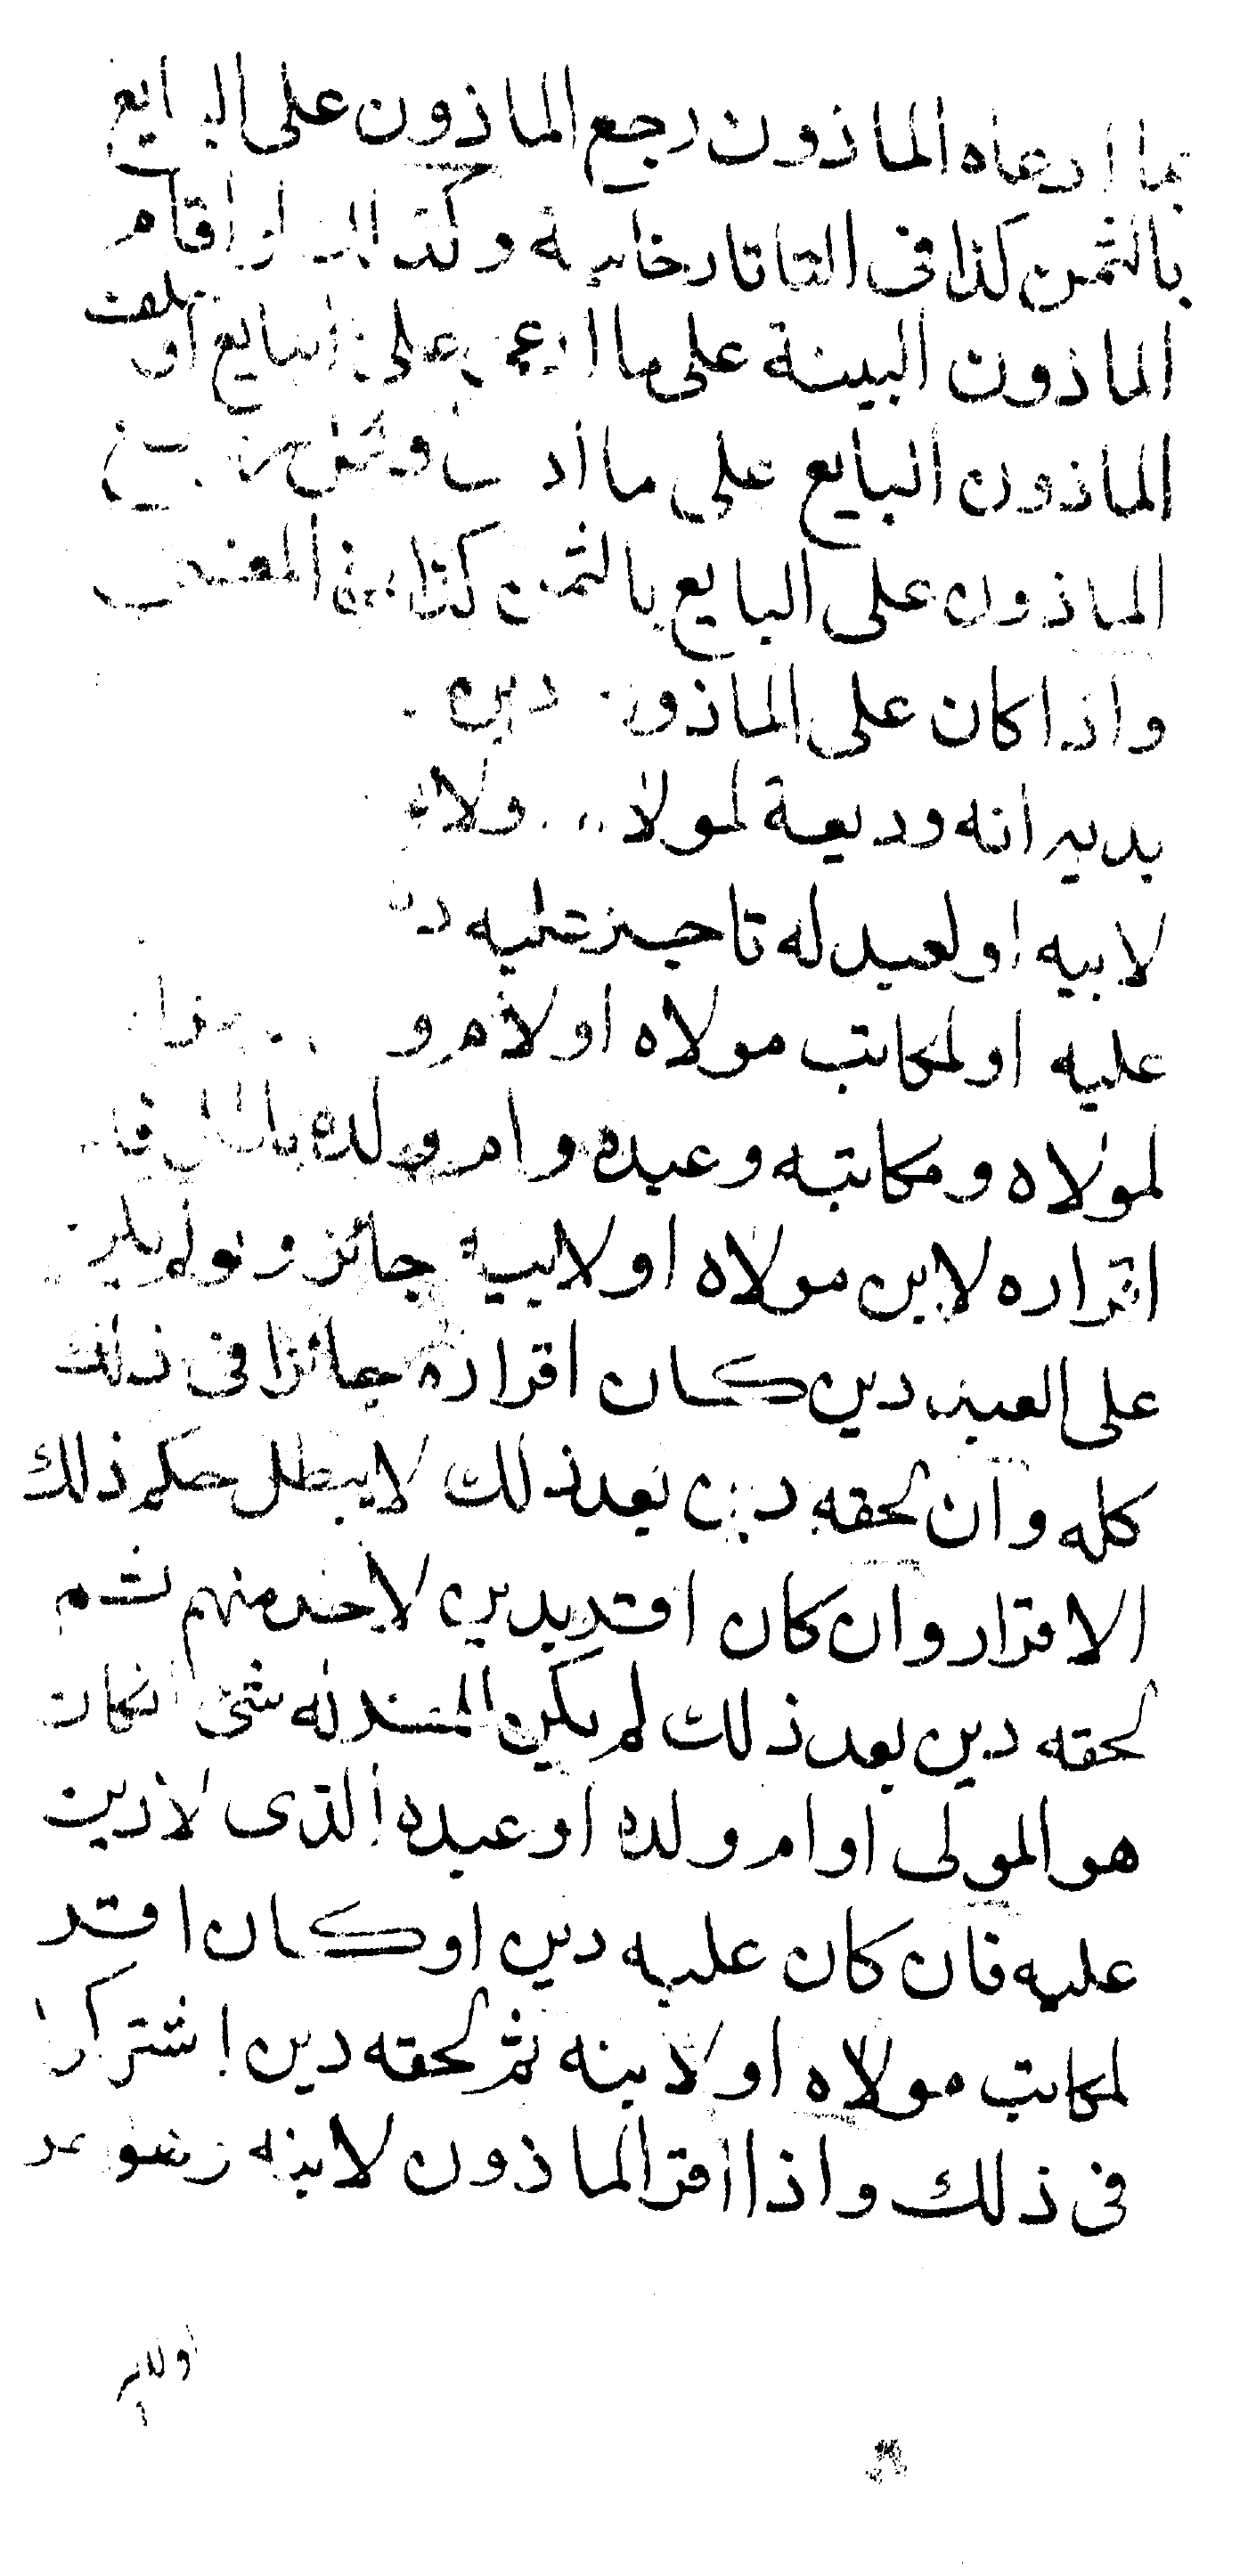 بما ادعاه الماذون رجع الماذون على البايع
بالثمن كذا فى التاتارخانية وكذا اقام
الماذون البينة على ما ادعى على البايع او حلف
الماذون البايع على ما
الماذون على البايع بالثمن كذا فى المغنى
واذا كان على الماذون دين
بديه انه وديعة لمولاه ولا
لابيه او لعبد له تاجر عليه دين
عليه او لمكاتب مولاه او لام و
لمولاه ومكاتبه وعبده وام ولده باطل
اقراره لابن مولاه او لابيه جائز ولو لم يكن
على العبد دين كان اقراره جائزا فى ذلك
كله وان لحقه دين بعد ذلك لا يبطل حكم ذلك
الاقرار وان كان اقر بدين لاحد منهم ثم
لحقه دين بعد ذلك لم يكن للمقر له شئ ان كان
هو المولى او ام ولده او عبده الذى لا دين
عليه فان كان عليه دين او كان اقر
لمكاتب مولاه او لابنه ثم لحقه دين اشتركا
فى ذلك واذا اقر الماذون لابنه وهو حر
او لابيه